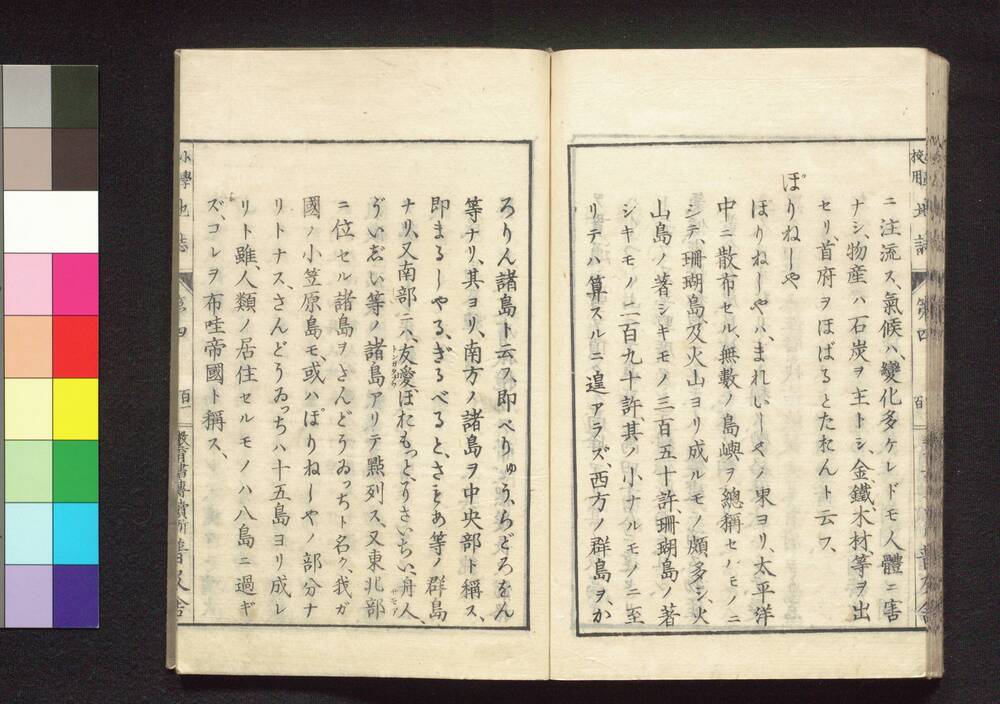 ニ注流ス、氣候ハ、變化多ケレドモ、人體ニ害
ナシ、物産ハ石炭ヲ主トシ、金鐵、木材、等ヲ出
セリ、首府ヲほばるとたれんト云フ、
ぽりねしや
ほりねーしやハ、まれいーしやノ東ヨリ、太平洋
中ニ散布セル、無數ノ島嶼ヲ總稱セルモノニ
シテ、珊瑚島及火山ヨリ成ルモノ頗多シ、火
山島ノ著シキモノ三百五十許、珊瑚島ノ著
シキモノ二百九十許其ノ小ナルモノニ至
リテハ算スルニ遑アラズ、西方ノ群島ヲ、か
ろりん諸島ト云フ、即ぺりゅう、らどろをん
等ナリ、其ヨリ、南方ノ諸島ヲ中央部ト稱ス、
即まるしやる、ぎるべると、さもあ等ノ群島
ナリ、又南部ニ、友愛、ぽたもっと、そさいち、舟人、
トンガタブウ
サモア
等ノ諸島アリテ點列ス、又東北部
ニ位セル諸島ヲさんどうゐっちト名ク、我ガ
國ノ小笠原島モ、或ハぽりねーしやノ部分ナ
リトナス、さんどうゐっちハ十五島ヨリ成レ
リト雖、人類ノ居住セルモノハ八島ニ過ギ
ズ、コレヲ布哇帝國ト稱ス、
小學地誌
第四
百一